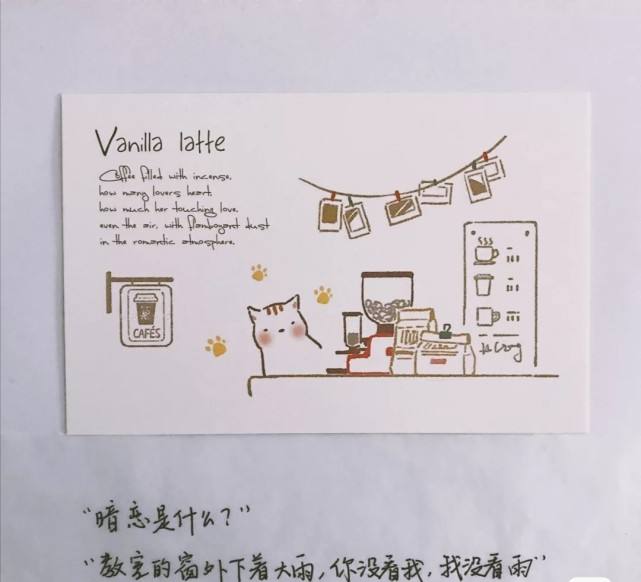 Vanilla latte
Coffee filled with incense,
how many lovers heart,
how much her touching love,
even the air, with flamboyant dust
in the romantic atmosphere.
CAFÉS
“暗恋是什么？”
“教室的窗外下着大雨，你没看我，我没看雨”